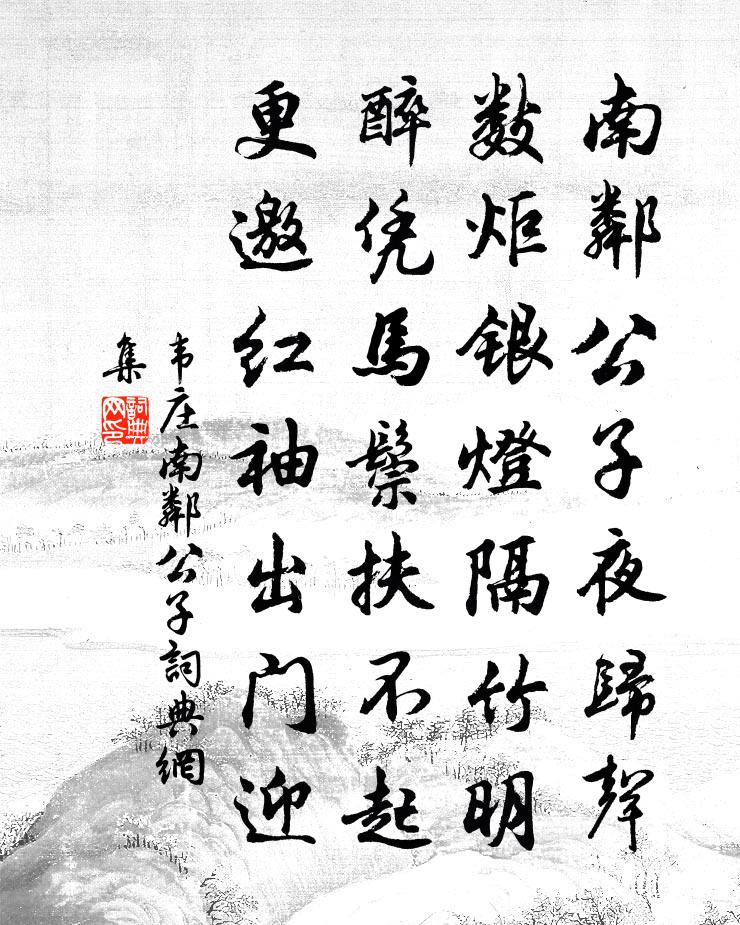 南鄰公子夜歸聲
數炬銀燈隔竹明
醉凭馬鬃扶不起
更邀红袖出门迎
韦庄南鄰公子詞典網
集
詞典网印